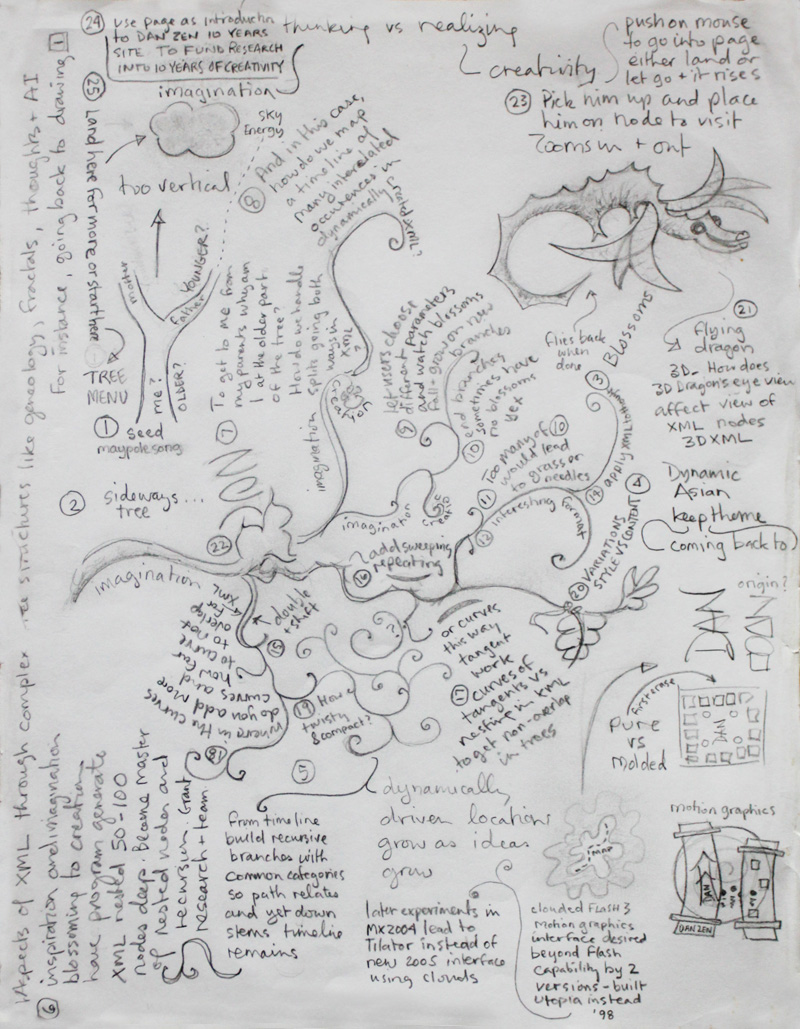 24 USE PAGE AS INTRODUCTN
TO DAN ZEN 10 YEARS
SITE TO FUND RESEARCH
INTO 10 YEARS OF CREATIVITY
thinking vs realizing
creativity
push on mouse
to go into page
either land or
let go + it rises
23 Pick him up and place
him on node to visit
Zooms in + out
imagination
SKY
Energy
too vertical
25 Land here for more or start here
TREE
MENU
mother
father
YOUNGER?
me?
OLDER?
1 seed
maypole song
2 sideways...
tree
8 And in this case,
how do we map
a timeline of
many interrelated
occurrences in
dynamically
7 To get to me from
my parents why am
I at the older part
of the tree?
How do we handle
splits going both
ways in
XML?
imagination
9 let users choose
different parameters
and watch blossoms
fall + grow on new
branches
10 end branches
sometimes have
no blossoms
yet
11 Too many of 10
would lead
to grass or
needles
12 interesting format
3 Blossoms
flies back
when
done
21
flying
dragon
3D - How does
3D Dragon's eye view
affect view of
XML nodes
3D XML
14 apply XML to thought
4
Dynamic
Asian
keep theme
coming back to
20 VARIATIONS
STYLE VS CONTENT
origin?
DAN
first erase
Pure
vs
Molded
DAN
22
imagination
imagination
16 add sweeping
repeating
15 double
+ shift
?
or curves
this way
tangent
work
curves of
tangents vs
nesting in XML
to get non-overlap
in trees
18 where in the curves
do you add more
curves and
how far
to curve
to not
overlap
for
XML
19 How
twisty
& compact?
5
dynamically
driven locations
grow as ideas
grow
from timeline
build recursive
branches with
common categories
so path relates
and yet down
stems timeline
remains
later experiments in
MX2004 lead to
Tilator instead of
new 2005 interface
using clouds
imap
clouded FLASH 3
motion graphics
interface desired
beyond Flash
capability by 2
versions - built
Utopia instead
'98
motion graphics
DAN ZEN
1 Aspects of XML through complex tree structures like geneology, fractals, thoughts + AI
For instance, going back to drawing 1
6 inspiration and imagination
blossoming to creation
have program generate
XML nested 50-100
nodes deep. Become master
of nested nodes and
recursion. Grant
research + team.